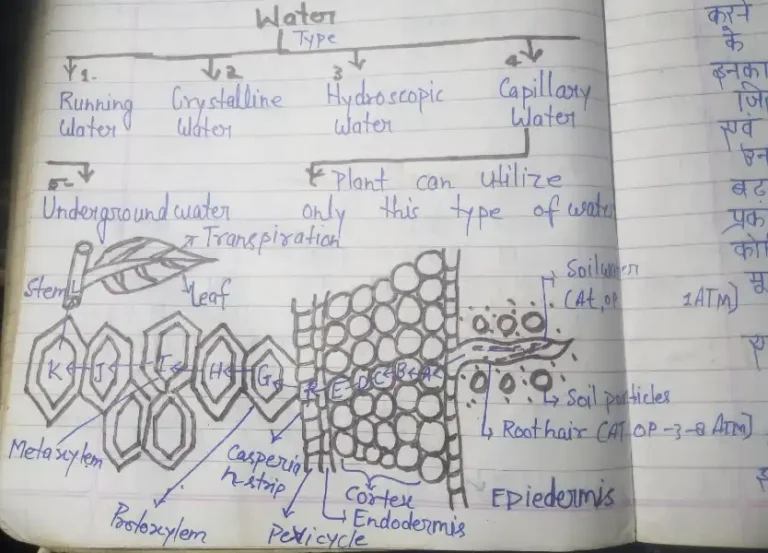 Water
Type
1.
2
3
4
Running Water
Crystalline Water
Hydroscopic Water
Capillary Water
5-
Underground water
Plant can utilize
only this type of water
Transpiration
Stem
Leaf
Soil water
(At, OP 1ATM)
K J I H G F E D C B A
Soil particles
Root hair (AT OP -3-8 ATM)
Metaxylem
Casperia
n-strip
Cortex
Endodermis
Epiedermis
Protoxylem
Pericycle
करने
के
इनका
एवं